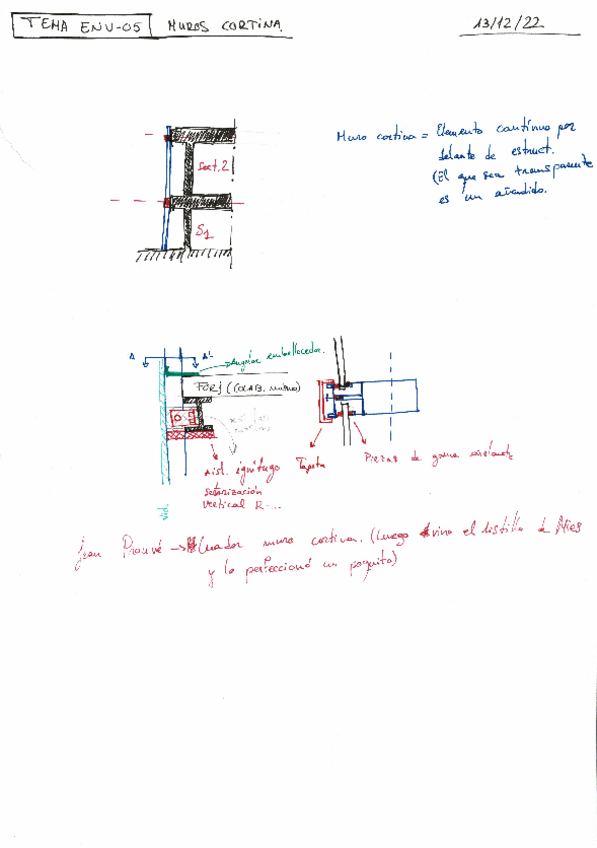 TEMA ENV-05 MUROS CORTINA.
13/12/22
Muro cortina = Elemento continuo por
delante de estruct.
(El que sea transparente
es un añadido.
Sect. 2
S1
A A'
Angular embellecedor.
FORJ (COLAB. mixto)
Aisl. ignífugo
Sectorización
vertical R-...
Vid.
Tapeta
Piezas de goma aislante
Jean Prouvé → Creador muro cortina. (Luego vino el listillo de Mies
y lo perfeccionó un poquito)